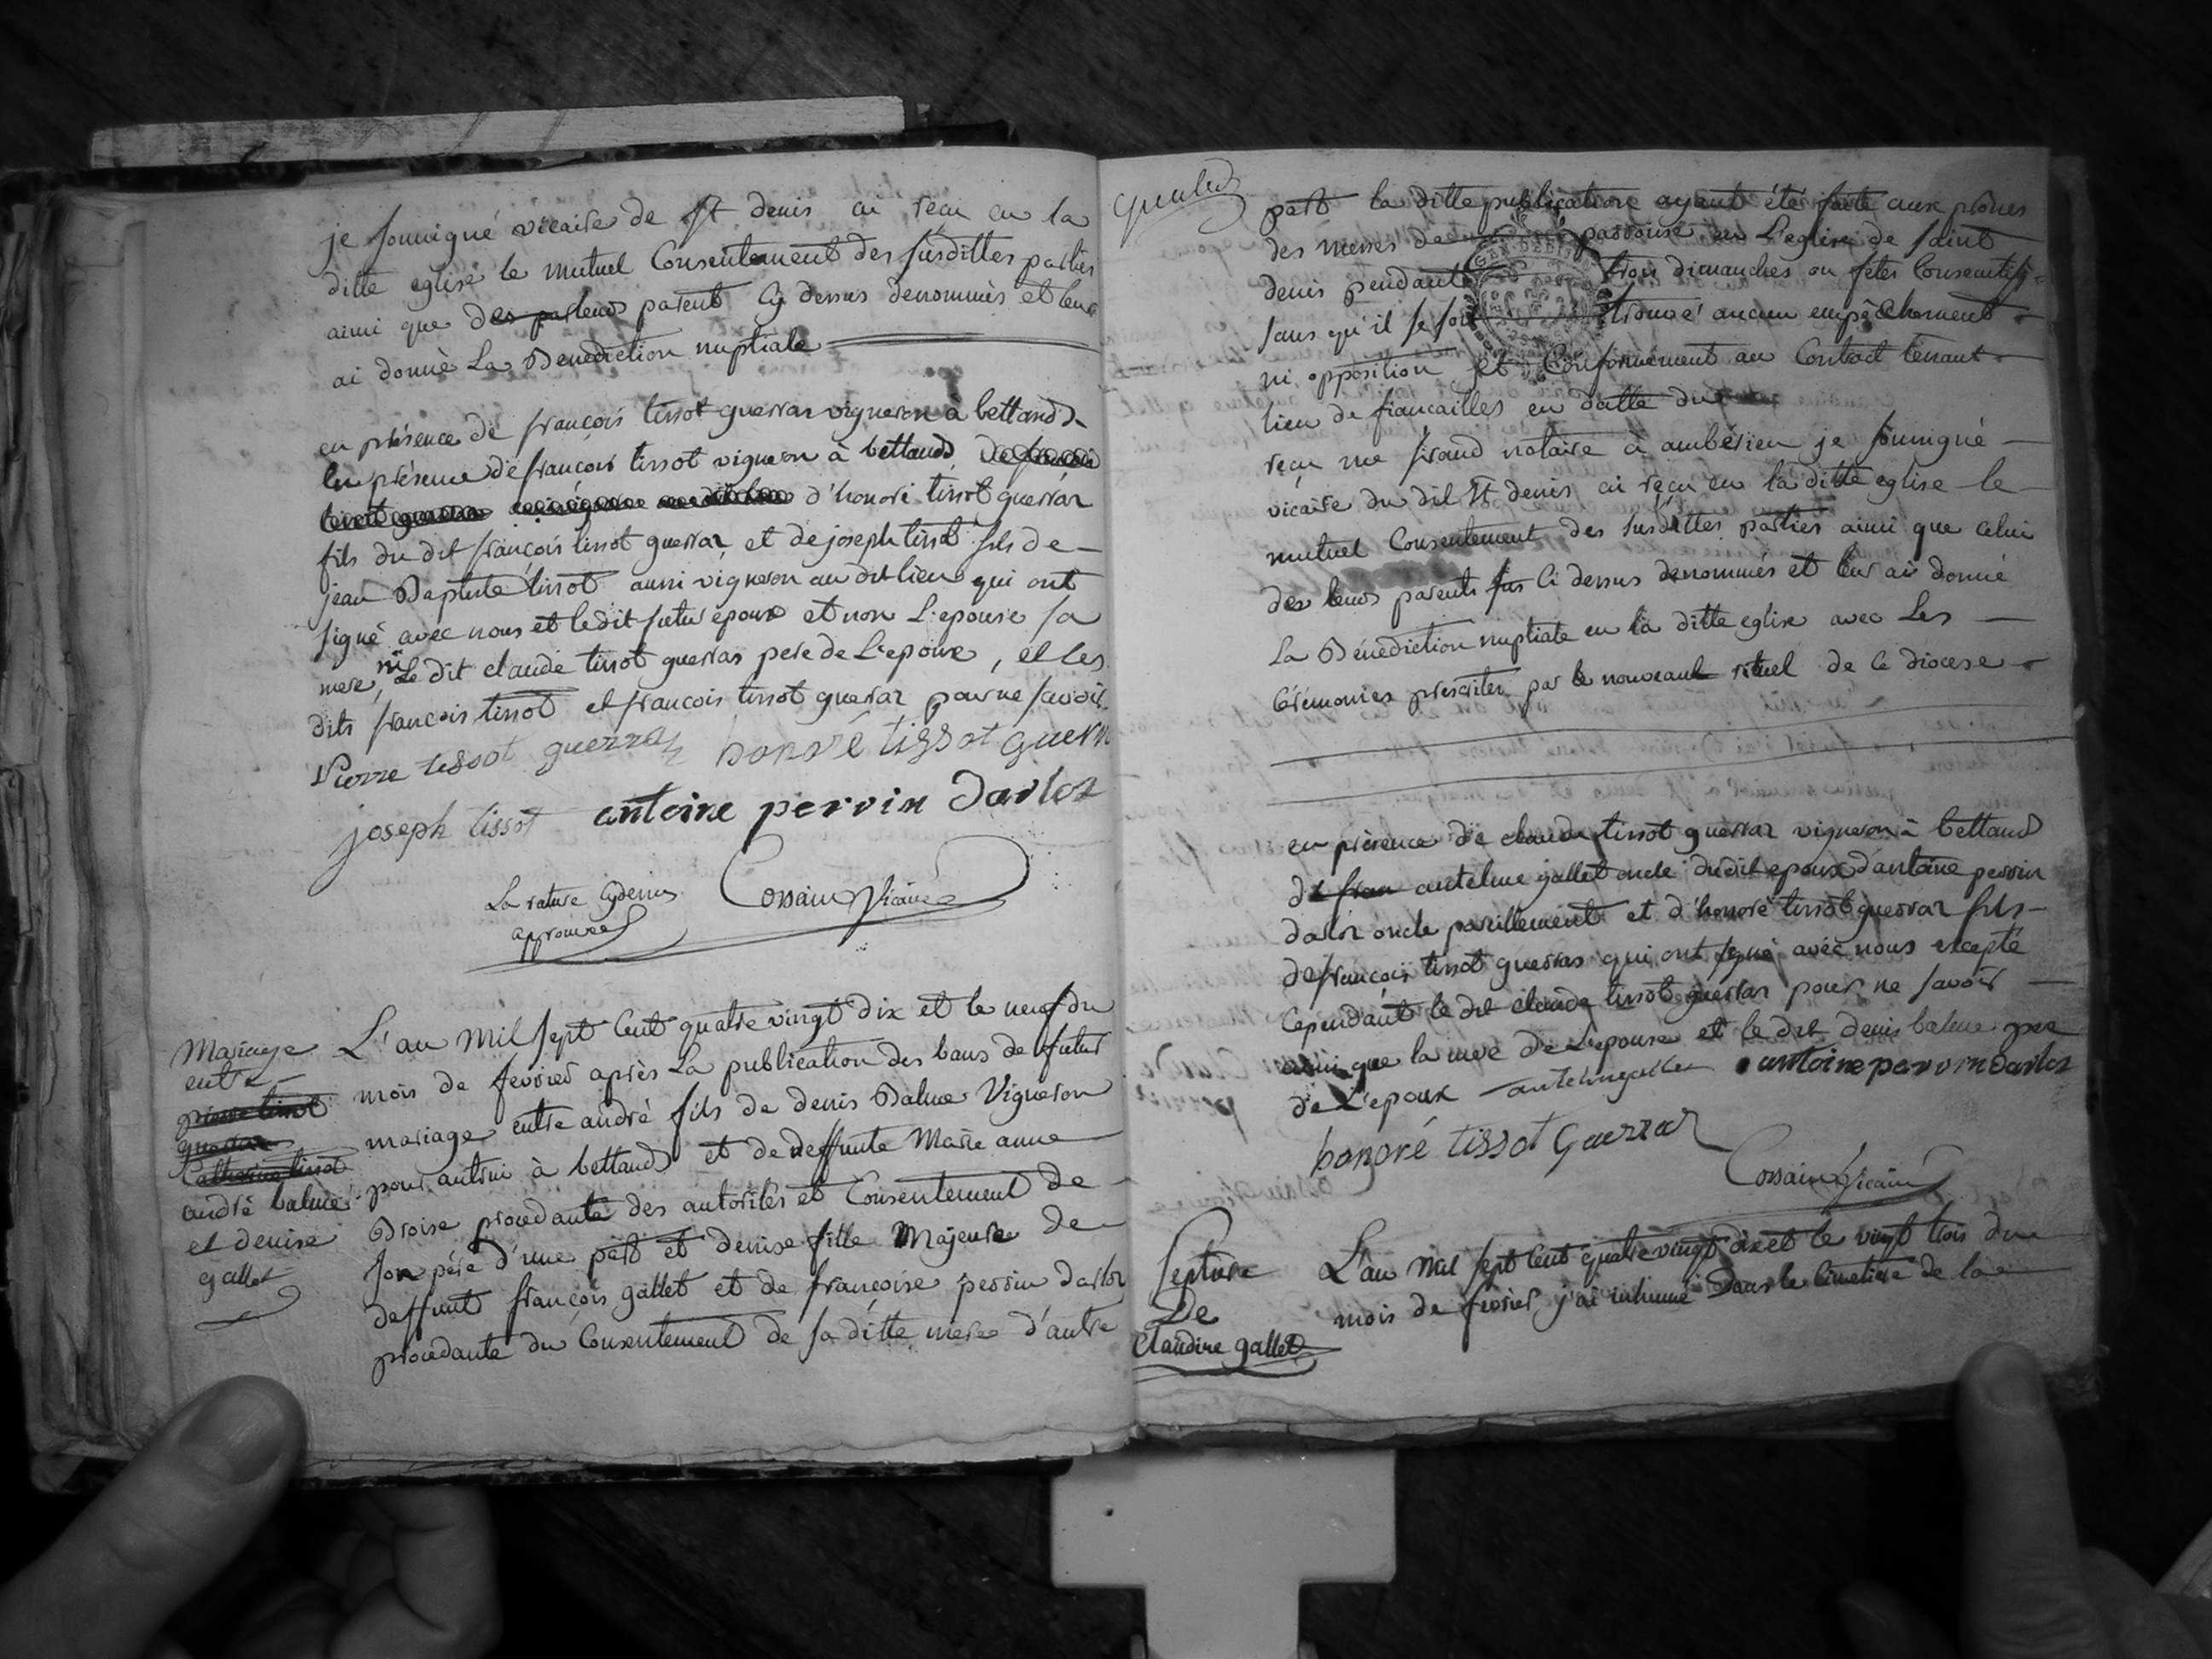 je soussigné vicaire de St denis ai reçu en la
ditte eglise le mutuel Consentement des susdittes parties
ainsi que des parents cy dessus denommés et leur
ai donné La Benediction nuptiale
en présence de françois tissot guerraz vigneron à bettand
en présence de françois tissot vigneron à bettand
d'honoré tissot guerraz
fils du dit françois tissot guerraz et de joseph tissot fils de
jean Baptiste tissot aussi vigneron au dit lieu qui ont
signé avec nous et le dit futur epoux et non L'epouse sa
mere, ni Le dit claude tissot guerraz pere de L'epoux, et les
dits françois tissot et françois tissot guerraz pour ne savoir
Pierre tissot guerraz honoré tissot guerra
joseph tissot antoine perrin darloz
La rature cy dessus
approuvée
Cossain Vicaire
Mariage
entre
pierre tissot
guerraz
Catherine tissot
andré balme
et denise
gallet
L'an Mil sept Cent quatre vingt dix et le neuf du
mois de fevrier après La publication des bans de futur
mariage entre andré fils de denis Balme Vigneron
pour autrui à bettand et de deffunte Marie anne
Broise procedante des autorités et Consentement de
son père d'une part et denise fille Majeure de
deffunt françois gallet et de françoise perrin darloz
procedante du Consentement de sa ditte mere d'autre
part la ditte publication ayant été faite aux prônes
des messes de paroisse en L'eglise de saint
denis pendant trois dimanches ou fetes Consecutifs
sans qu'il se soit trouvé aucun empêchement
ni opposition et Conformement au Contract tenant
lieu de fiancailles en datte du
reçu me sirand notaire à ambérieu je soussigné
vicaire du dit St denis ai reçu en la ditte eglise le
mutuel Consentement des susdittes parties ainsi que celui
des leurs parents sus Ci dessus denommés et leur ai donné
La Bénédiction nuptiale en la ditte eglise avec Les
Cérémonies prescrites par le nouveau rituel de Ce diocese
en présence de claude tissot guerraz vigneron à bettand
de fran antelme gallet oncle dudit epoux d'antoine perrin
darloz oncle pareillement et d'honoré tissot guerraz fils
de françois tissot guerraz qui ont signé avec nous excepté
Cependant le dit claude tissot guerraz pour ne savoir
ainsi que la mere de L'epouse et le dit denis balme pere
de L'epoux antelme gallet antoine perrin darloz
honoré tissot Guerraz
Cossain Vicaire
Septure
De
Claudine gallet
L'an Mil sept Cent quatre vingt dix et le vingt trois du
mois de fevrier j'ai inhumé Dans le Cimetiere de la